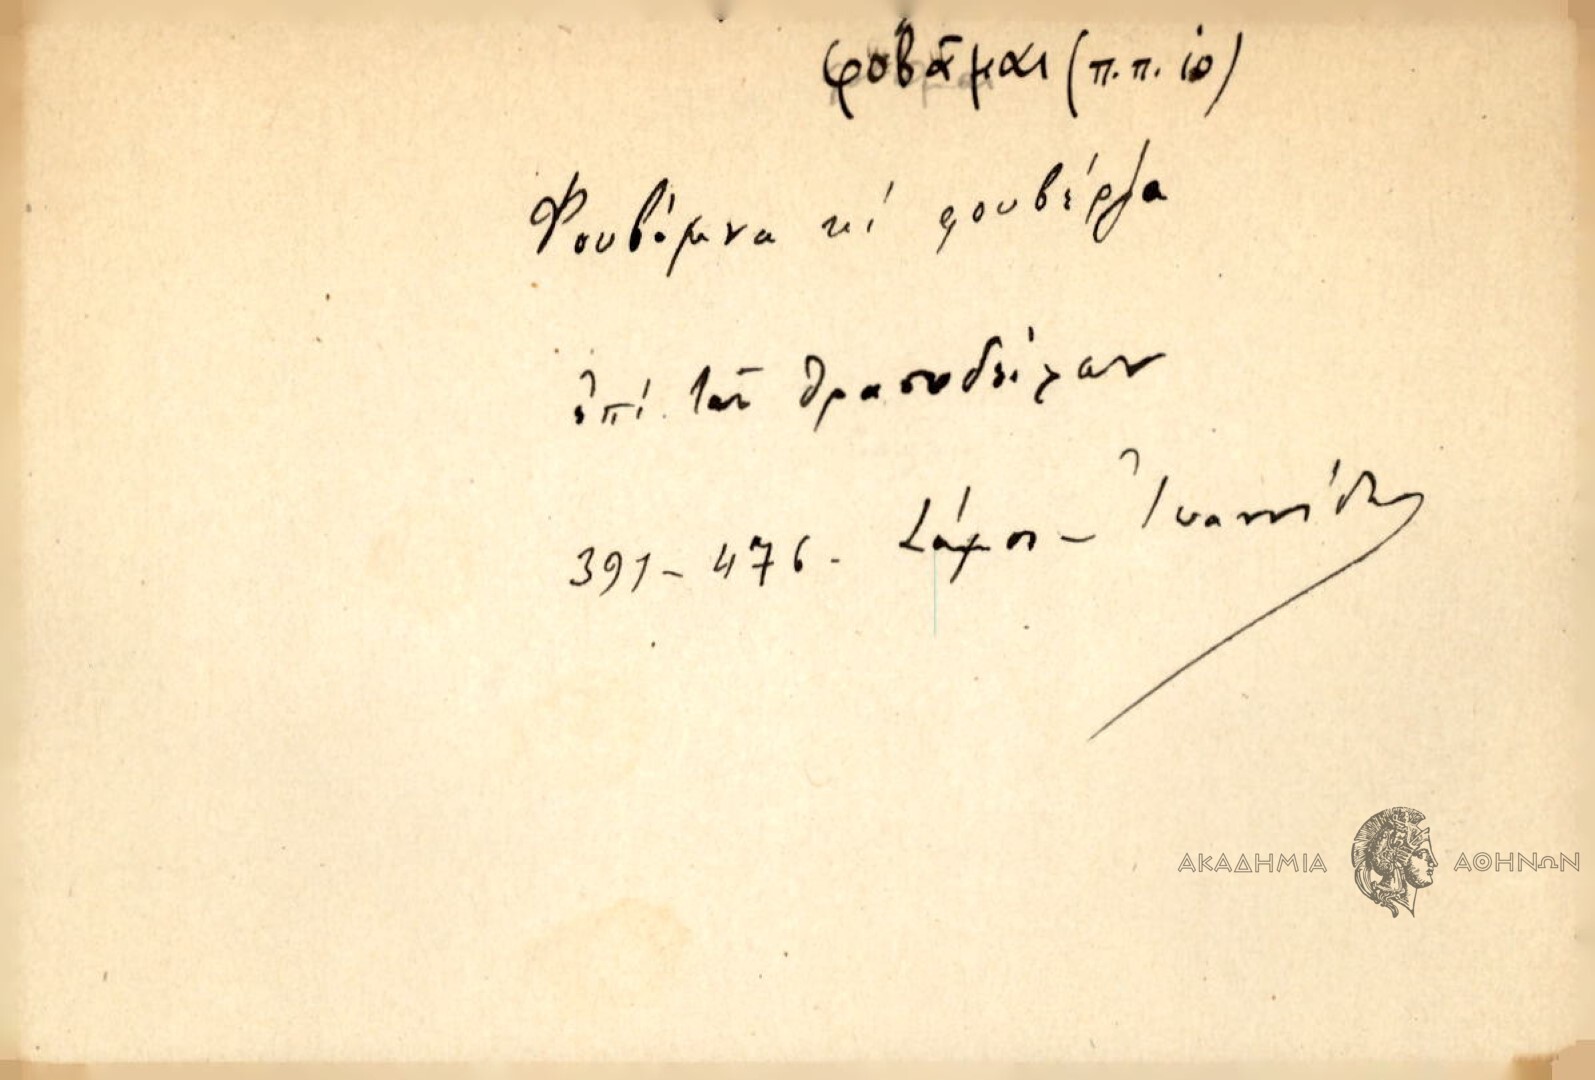 φοβᾶμαι (π.π. ιο)
Φουβάμνα κι φουβέρζα
ἐπί τῶν θρασυδείλων
391-476. Σάμος - Ἰωαννίδης
ΑΚΑΔΗΜΙΑ ΑΘΗΝΩΝ